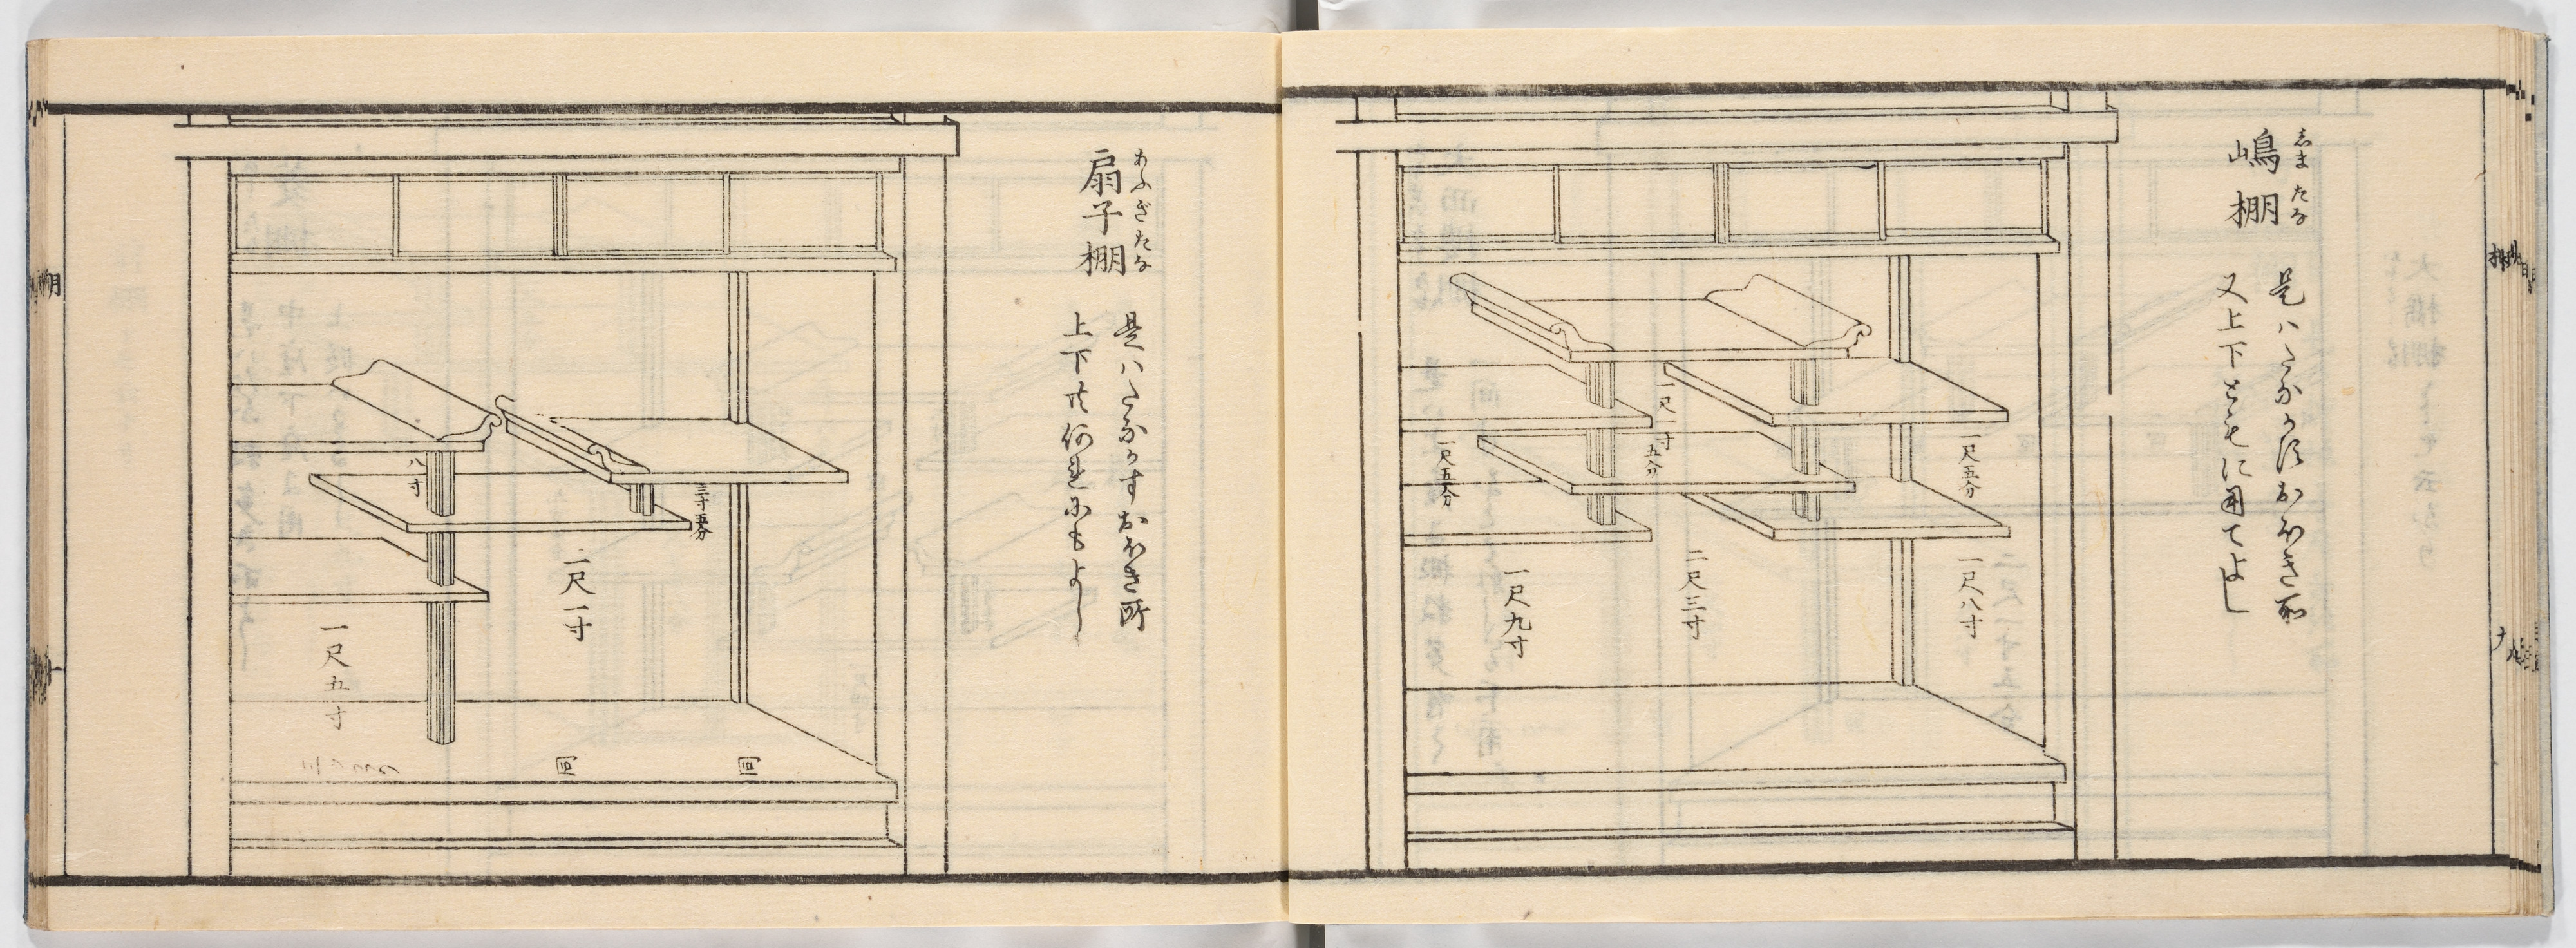 嶋棚
しまたな
是ハたなかず おほき所
又上下ともに用てよし
一尺一寸
五分
一尺五分
一尺五分
一尺八寸
二尺三寸
一尺九寸
扇子棚
あふぎたな
是ハたなかずおほき所
上下共何連にもよし
八寸
三寸五分
二尺一寸
一尺五寸